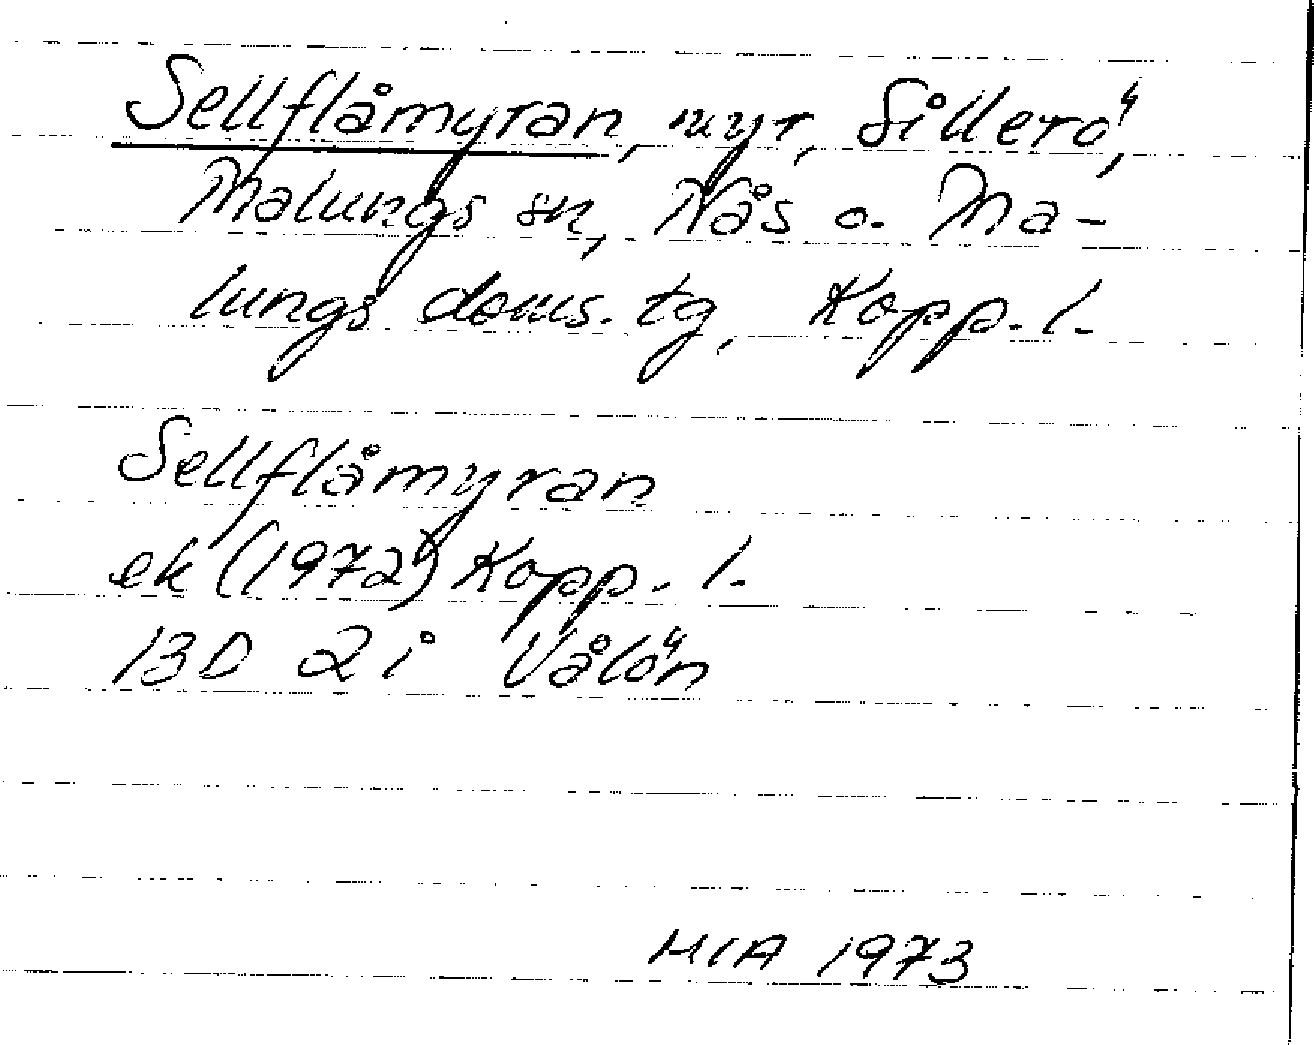 Sellflåmyran, myr, Sillerö,
Malungs sn, Nås o. Ma-
lungs doms. tg, Kopp. l.
Sellflåmyran
ek (1972) Kopp. l.
13D 2i Vålön
MIA 1973